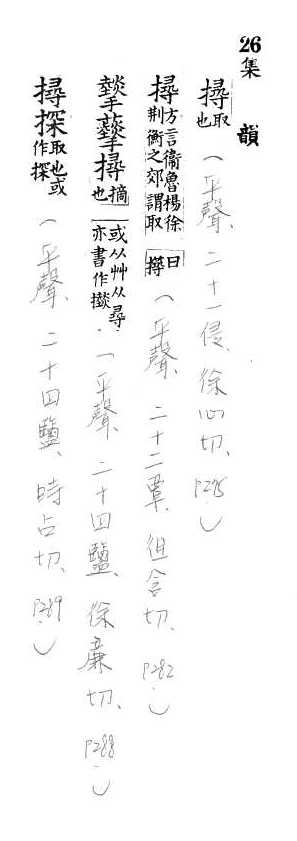 26集 韻
撏取也(平聲、二十一侵、徐心切、P275)
撏方言衞魯楊徐荆衡之郊謂取曰撏(平聲、二十二覃、徂含切、P282)
撏摘也或从艸从尋亦書作㨻(平聲、二十四鹽、徐廉切、P288)
撏探取也或作探(平聲、二十四鹽、時占切、P289)